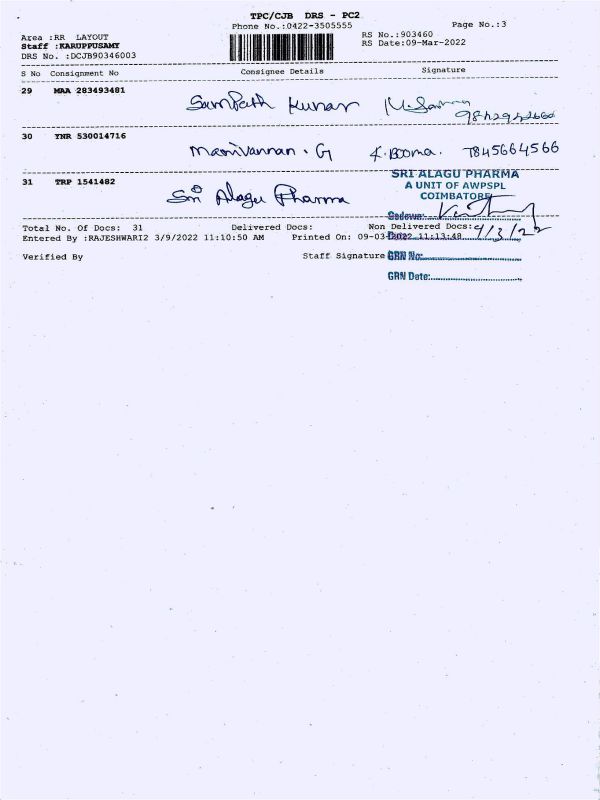 TPC/CJB DRS - PC2
Phone No.:0422-3505555
Page No.:3
Area :RR LAYOUT
RS No.:903460
Staff :KARUPPUSAMY
RS Date:09-Mar-2022
DRS No. :DCJB90346003
S No Consignment No Consignee Details Signature
29 MAA 283493481 Sampath Kumar
30 YNR 530014716 Manivannan . G K. Booma. 7845664566
31 TRP 1541482 Sri Alagu Pharma
SRI ALAGU PHARMA
A UNIT OF AWPSPL
COIMBATORE
Godown:
Total No. Of Docs: 31 Delivered Docs: Non Delivered Docs:
Entered By :RAJESHWARI2 3/9/2022 11:10:50 AM Printed On: 09-03-2022 11:13:48
Verified By Staff Signature
GRN No:
GRN Date: